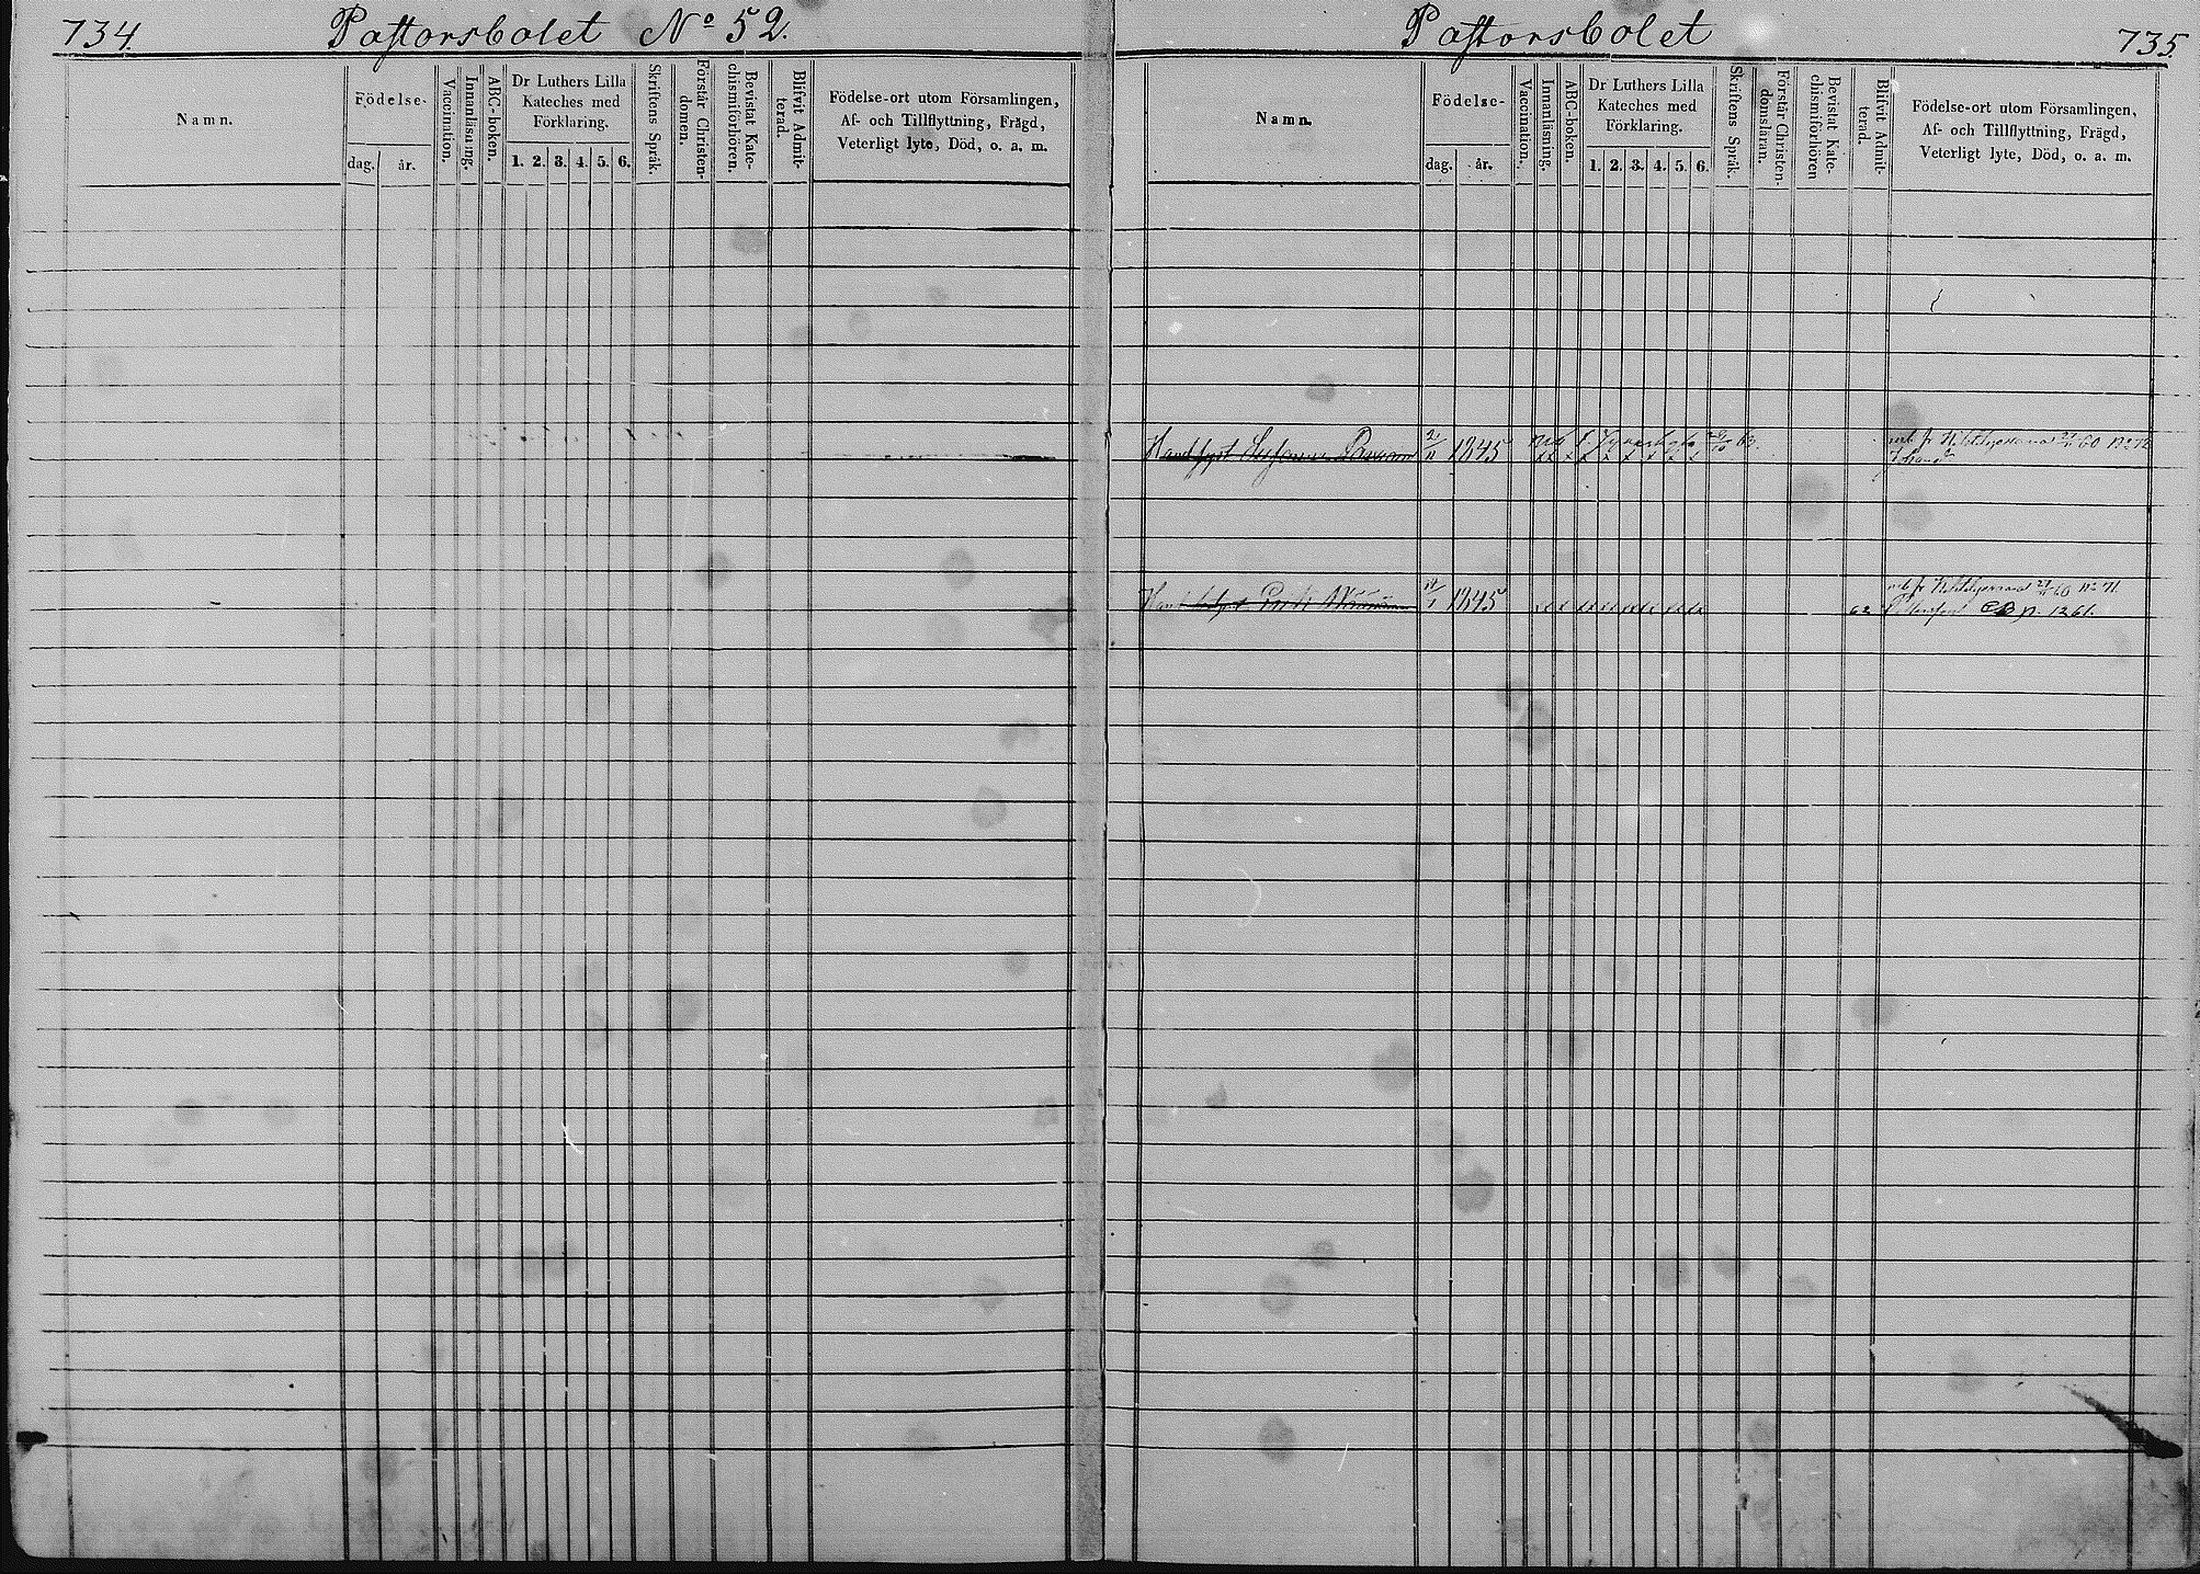 734.
Pastorsbolet No 52.
Namn.
Födelse-
dag.
år.
Vaccination.
Innanläsning.
ABC-boken.
Dr Luthers Lilla
Kateches med
Förklaring.
1. 2. 3. 4. 5. 6.
Skriftens Språk.
Förstår Christen-
domen.
Bevistat Kate-
chismiförhören.
Blifvit Admit-
terad.
Födelse-ort utom Församlingen,
Af- och Tillflyttning, Frägd,
Veterligt lyte, Död, o. a. m.
Pastorsbolet
735
Namn.
Födelse-
dag.
år.
Vaccination.
Innanläsning.
ABC-boken.
Dr Luthers Lilla
Kateches med
Förklaring.
1. 2. 3. 4. 5. 6.
Skriftens Språk.
Förstår Christen-
domslaran.
Bevistat Kate-
chismiförhören
Blifvit Admit-
terad.
Födelse-ort utom Församlingen,
Af- och Tillflyttning, Frägd,
Veterligt lyte, Död, o. a. m.
1845
60 No 72
1845
60 No 71
62
CB p. 1261.